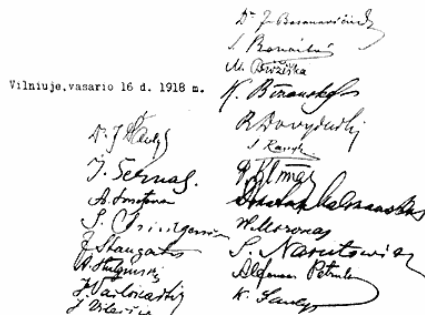 Vilniuje, vasario 16 d. 1918 m.
Dr J. Basanavičius
M. Biržiška
K. Bizauskas
S. Kairys
P. Klimas
Donatas Malinauskas
S. Narutowicz
Alfonsas Petrulis
K. Šaulys
Dr. J. Šaulys
J. Šernas
A. Smetona
J. Staugaitis
A. Stulginskis
J. Vailokaitis
J. Vileišis